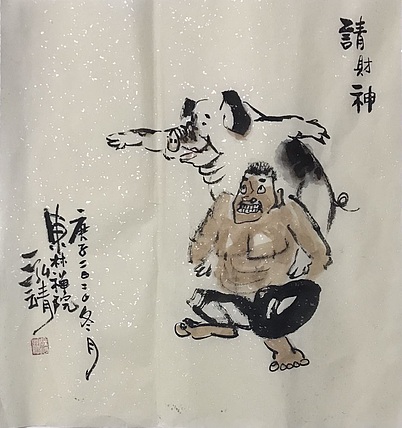 請財神
庚子二〇二〇冬月
東林禅院